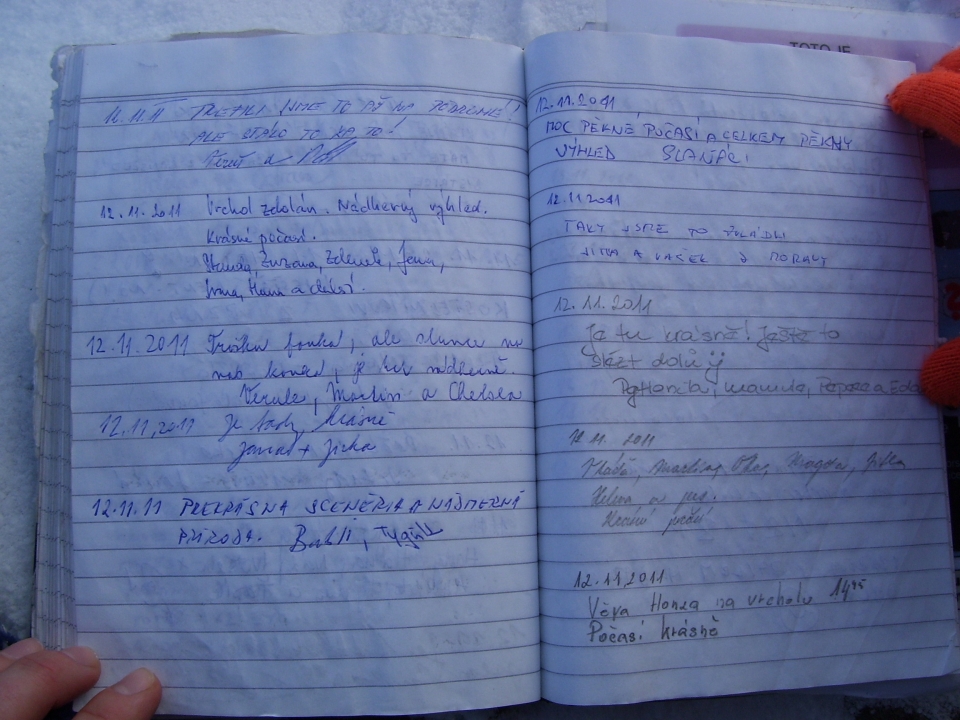 11.11.11 PŘEŽILI JSME TO AŽ NA PODRUHÉ!
ALE STÁLO TO ZA TO!
a
12.11.2011 Vrchol zdolán. Nádherný výhled.
Krásné počasí.
Zuzana, Zdeněk, Jena,
Ivana, Hana a další.
12.11.2011 Trošku fouká, ale slunce na
nás kouká, je to nádherné.
Verule, Martin a Chelsea
12.11.2011 Je tady krásně
Jana + Jirka
12.11.11 PŘEKRÁSNÁ SCENÉRIA A NÁDHERNÁ
PŘÍRODA. Bubli, Tygřík
TOTO JE
12.11.2011
MOC PĚKNÉ POČASÍ A CELKEM PĚKNÝ
VÝHLED SLAŇÁCI
12.11.2011
TAKY JSME TO ZVLÁDLI
JITKA A VAŠEK Z MORAVY
12.11.2011
Je tu krásně! Ještě to
slézt dolů
Honza, Pepa a Eda
12.11.2011
Vláďa, Martina, Magda, Jitka
Helena a pes.
Krásné počasí
12.11.2011
Věra Honza na vrcholu 14
Počasí krásné